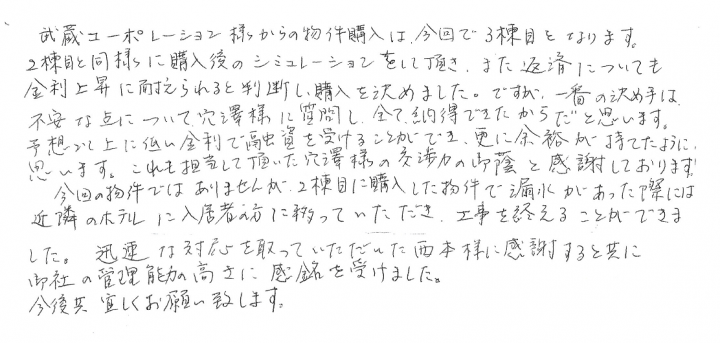 武蔵コーポレーション様からの物件購入は、今回で3棟目となります。
2棟目と同様に購入後のシミュレーションをして頂き、また返済についても
金利上昇に耐えられると判断し購入を決めました。ですが、一番の決め手は、
不安な点について穴澤様に質問し、全て納得できたからだと思います。
予想以上に低い金利で融資を受けることができ、更に余裕が持てたように
思います。これも担当して頂いた穴澤様の交渉力の御蔭と感謝しております
今回の物件ではありませんが、2棟目に購入した物件で漏水があった際には
近隣のホテルに入居者の方に移っていただき、工事を終えることができま
した。迅速な対応を取っていただいた西本様に感謝すると共に
御社の管理能力の高さに感銘を受けました。
今後共宜しくお願い致します。